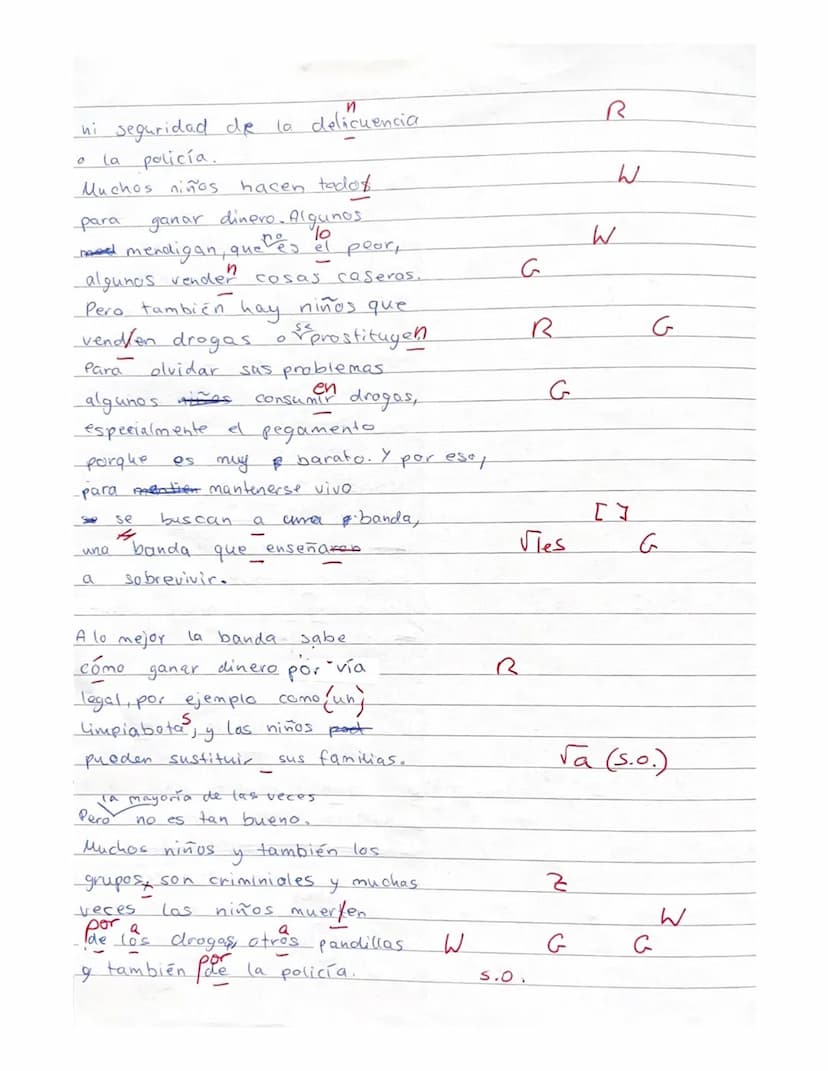 n
ni seguridad de la delicuencia R
o la policía.
Muchos niños hacen todos W
para ganar dinero. Algunos
no lo
mendigan, que es el peor, W
n
algunos vender cosas caseras. G
Pero también hay niños que
se
venden drogas o prostituyen R G
Para olvidar sus problemas
en
algunos niños consumir drogas, G
especialmente el pegamento
porque es muy barato. Y por eso,
para mantenerse vivo
se buscan a una banda, [ ]
una banda que enseñaron √les G
a sobrevivir.
A lo mejor la banda sabe
cómo ganar dinero por vía R
legal, por ejemplo como (un)
s
limpiabota, y las niños
pueden sustituir sus familias. √a (s.o.)
la mayoría de las veces
Pero no es tan bueno.
Muchos niños y también los
grupos, son criminioles y muchas Z
veces los niños muerten W
por a a
de los drogas, otros pandillas W G G
por
y también de la policía. s.o.